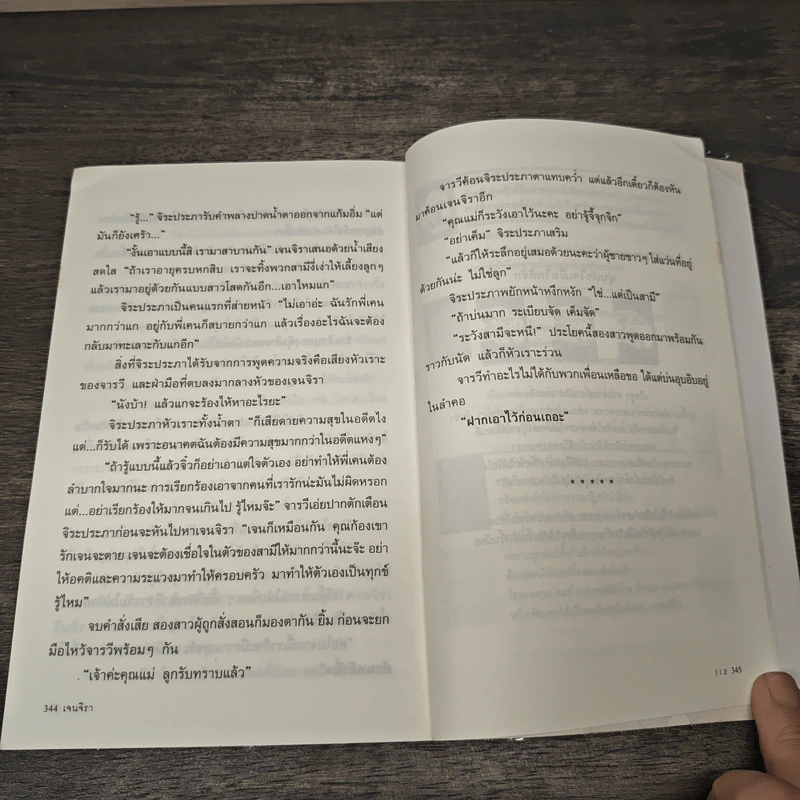 “รู้...” จิระประภารับคำพลางปาดน้ำตาออกจากแก้มอิ่ม “แต่
มันก็ยังเศร้า...”
“งั้นเอาแบบนี้สิ เรามาสาบานกัน” เจนจิราเสนอด้วยน้ำเสียง
สดใส “ถ้าเราอายุครบหกสิบ เราจะทิ้งพวกสามีขี้เง่าให้เลี้ยงลูกๆ
แล้วเรามาอยู่ด้วยกันแบบสาวโสดกันอีก...เอาไหมแก”
จิระประภาเป็นคนแรกที่ส่ายหน้า “ไม่เอาอ่ะ ฉันรักพี่เคน
มากกว่าแก อยู่กับพี่เคนก็สบายกว่าแก แล้วเรื่องอะไรฉันจะต้อง
กลับมาทะเลาะกับแกอีก”
สิ่งที่จิระประภาได้รับจากการพูดความจริงคือเสียงหัวเราะ
ของจารวี และฝ่ามือที่ตบลงมากลางหัวของเจนจิรา
“นังบ้า! แล้วแกจะร้องไห้หาอะไรยะ”
จิระประภาหัวเราะทั้งน้ำตา “ก็เสียดายความสุขในอดีตไง
แต่...ก็รับได้ เพราะอนาคตฉันต้องมีความสุขมากกว่าในอดีตแหงๆ”
“ถ้ารู้แบบนี้แล้วจิ๋วก็อย่าเอาแต่ใจตัวเอง อย่าทำให้พี่เคนต้อง
ลำบากใจมากนะ การเรียกร้องเอาจากคนที่เรารักน่ะมันไม่ผิดหรอก
แต่...อย่าเรียกร้องให้มากจนเกินไป รู้ไหมจ๊ะ” จารวีเอ่ยปากตักเตือน
จิระประภาก่อนจะหันไปหาเจนจิรา “เจนก็เหมือนกัน คุณก้องเขา
รักเจนจะตาย เจนจะต้องเชื่อใจในตัวของสามีให้มากกว่านี้นะจ๊ะ อย่า
ให้อคติและความระแวงมาทำให้ครอบครัว มาทำให้ตัวเองเป็นทุกข์
รู้ไหม”
จบคำสั่งเสีย สองสาวผู้ถูกสั่งสอนก็มองตากัน ยิ้ม ก่อนจะยก
มือไหว้จารวีพร้อมๆ กัน
“เจ้าค่ะคุณแม่ ลูกรับทราบแล้ว”
344 เจนจิรา
จารวีค้อนจิระประภาตาแทบคว่ำ แต่แล้วอีกเดี๋ยวก็ต้องหัน
มาค้อนเจนจิราอีก
“คุณแม่ก็ระวังเอาไว้นะคะ อย่าจู้จี้จุกจิก”
“อย่าเค็ม” จิระประภาเสริม
“แล้วก็ให้ระลึกอยู่เสมอด้วยนะคะว่าผู้ชายขาวๆ ใส่แว่นที่อยู่
ด้วยกันน่ะ ไม่ใช่ลูก”
จิระประภาพยักหน้าหงึกหงัก “ใช่...แต่เป็นสามี”
“ถ้าบ่นมาก ระเบียบจัด เค็มจัด”
“ระวังสามีจะหนี!” ประโยคนี้สองสาวพูดออกมาพร้อมกัน
ราวกับนัด แล้วก็หัวเราะร่วน
จารวีทำอะไรไม่ได้กับพวกเพื่อนเหลือขอ ได้แต่บ่นอุบอิบอยู่
ในลำคอ
“ฝากเอาไว้ก่อนเถอะ”
*****
345